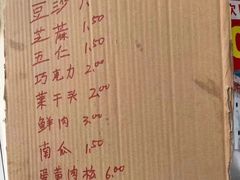 豆沙
芝麻
1.50
五仁
1.50
巧克力
2.00
菜干头
2.00
鲜肉
3.00
南瓜
1.50
蛋黄肉松
6.00